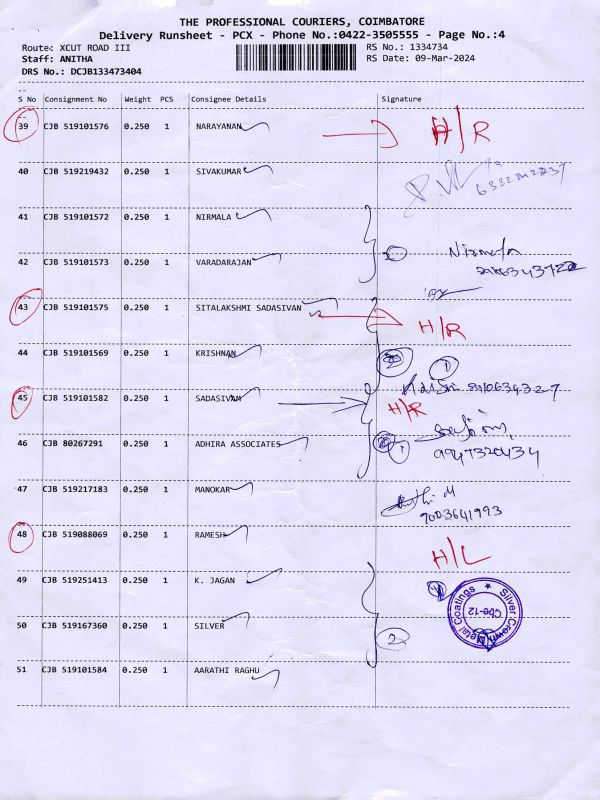 THE PROFESSIONAL COURIERS, COIMBATORE
Delivery Runsheet - PCX - Phone No.:0422-3505555 - Page No.:4
Route: XCUT ROAD III RS No.: 1334734
Staff: ANITHA RS Date: 09-Mar-2024
DRS No.: DCJB133473404
S No Consignment No Weight PCS Consignee Details Signature
39 CJB 519101576 0.250 1 NARAYANAN H/R
40 CJB 519219432 0.250 1 SIVAKUMAR
41 CJB 519101572 0.250 1 NIRMALA
42 CJB 519101573 0.250 1 VARADARAJAN Nirmala
43 CJB 519101575 0.250 1 SITALAKSHMI SADASIVAN H/R
44 CJB 519101569 0.250 1 KRISHNAN 1
45 CJB 519101582 0.250 1 SADASIVAN H/R
46 CJB 80267291 0.250 1 ADHIRA ASSOCIATES 1
9947320434
47 CJB 519217183 0.250 1 MANOKAR
9003641993
48 CJB 519088069 0.250 1 RAMESH H/L
49 CJB 519251413 0.250 1 K. JAGAN
50 CJB 519167360 0.250 1 SILVER 2
Silver Crown Metal Coatings
Cbe-12
51 CJB 519101584 0.250 1 AARATHI RAGHU